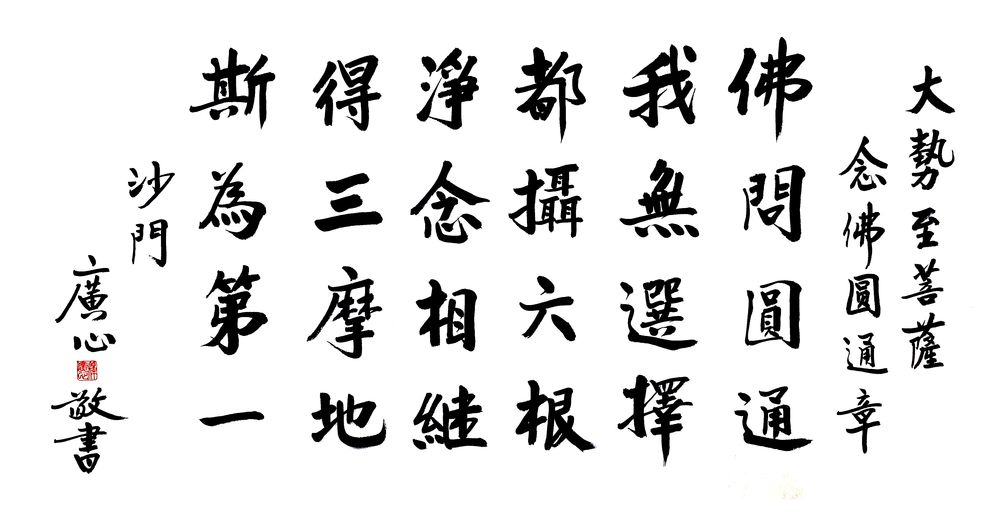 大勢至菩薩
念佛圓通章
佛問圓通
我無選擇
都攝六根
淨念相繼
得三摩地
斯為第一
沙門
廣心
敬書